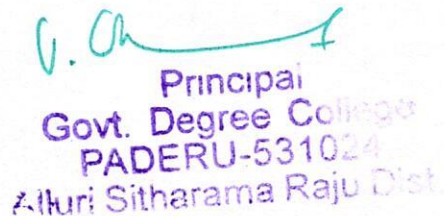 Principal
Govt. Degree College
PADERU-531024
Alluri Sitharama Raju Dist.